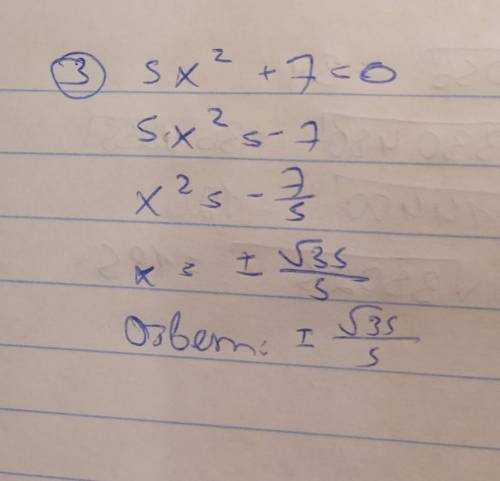 ③ 5x² + 7 = 0
5x² = -7
x² = - 7/5
x = ± √35/5
Ответ: ± √35/5